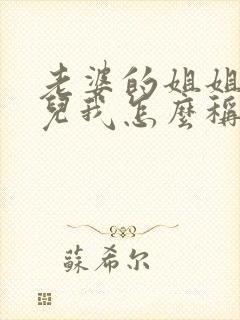 老婆的姐姐
兒我怎麼稱
蘇希尔